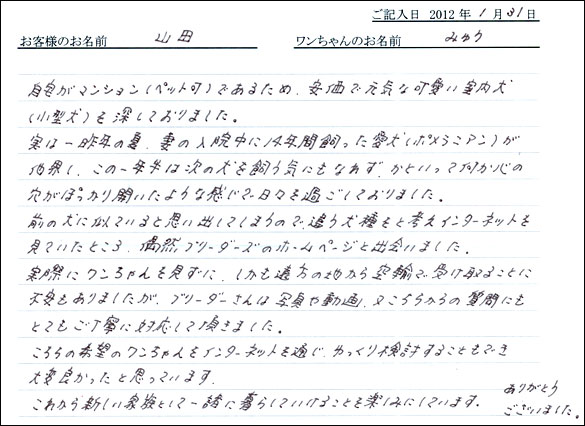 ご記入日 2012年 1月31日
お客様のお名前 山田 ワンちゃんのお名前 みゅう
自宅がマンション(ペット可)であるため、安価で元気な可愛い室内犬
(小型犬)を深しておりました。
実は一昨年の夏、妻の入院中に14年間飼った愛犬(ポメラニアン)が
他界し、この一年半は次の犬を飼う気にもなれず、かといって何か心の
穴がぽっかり開いたような感じで日々を過ごしておりました。
前の犬に似ていると思い出してしまうので、違う犬種をと考えインターネットを
見ていたところ、偶然ブリーダーズのホームページと出会いました。
実際にワンちゃんを見ずに、しかも遠方の地から空輸で受け取ることに
不安もありましたが、ブリーダーさんは写真や動画、又こちらからの質問にも
とてもご丁寧に対応して頂きました。
こちらの希望のワンちゃんをインターネットを通じ、ゆっくり検討することもでき
大変良かったと思っています。
これから新しい家族として一緒に暮らしていけることを楽しみにしています。
ありがとう
ございました。